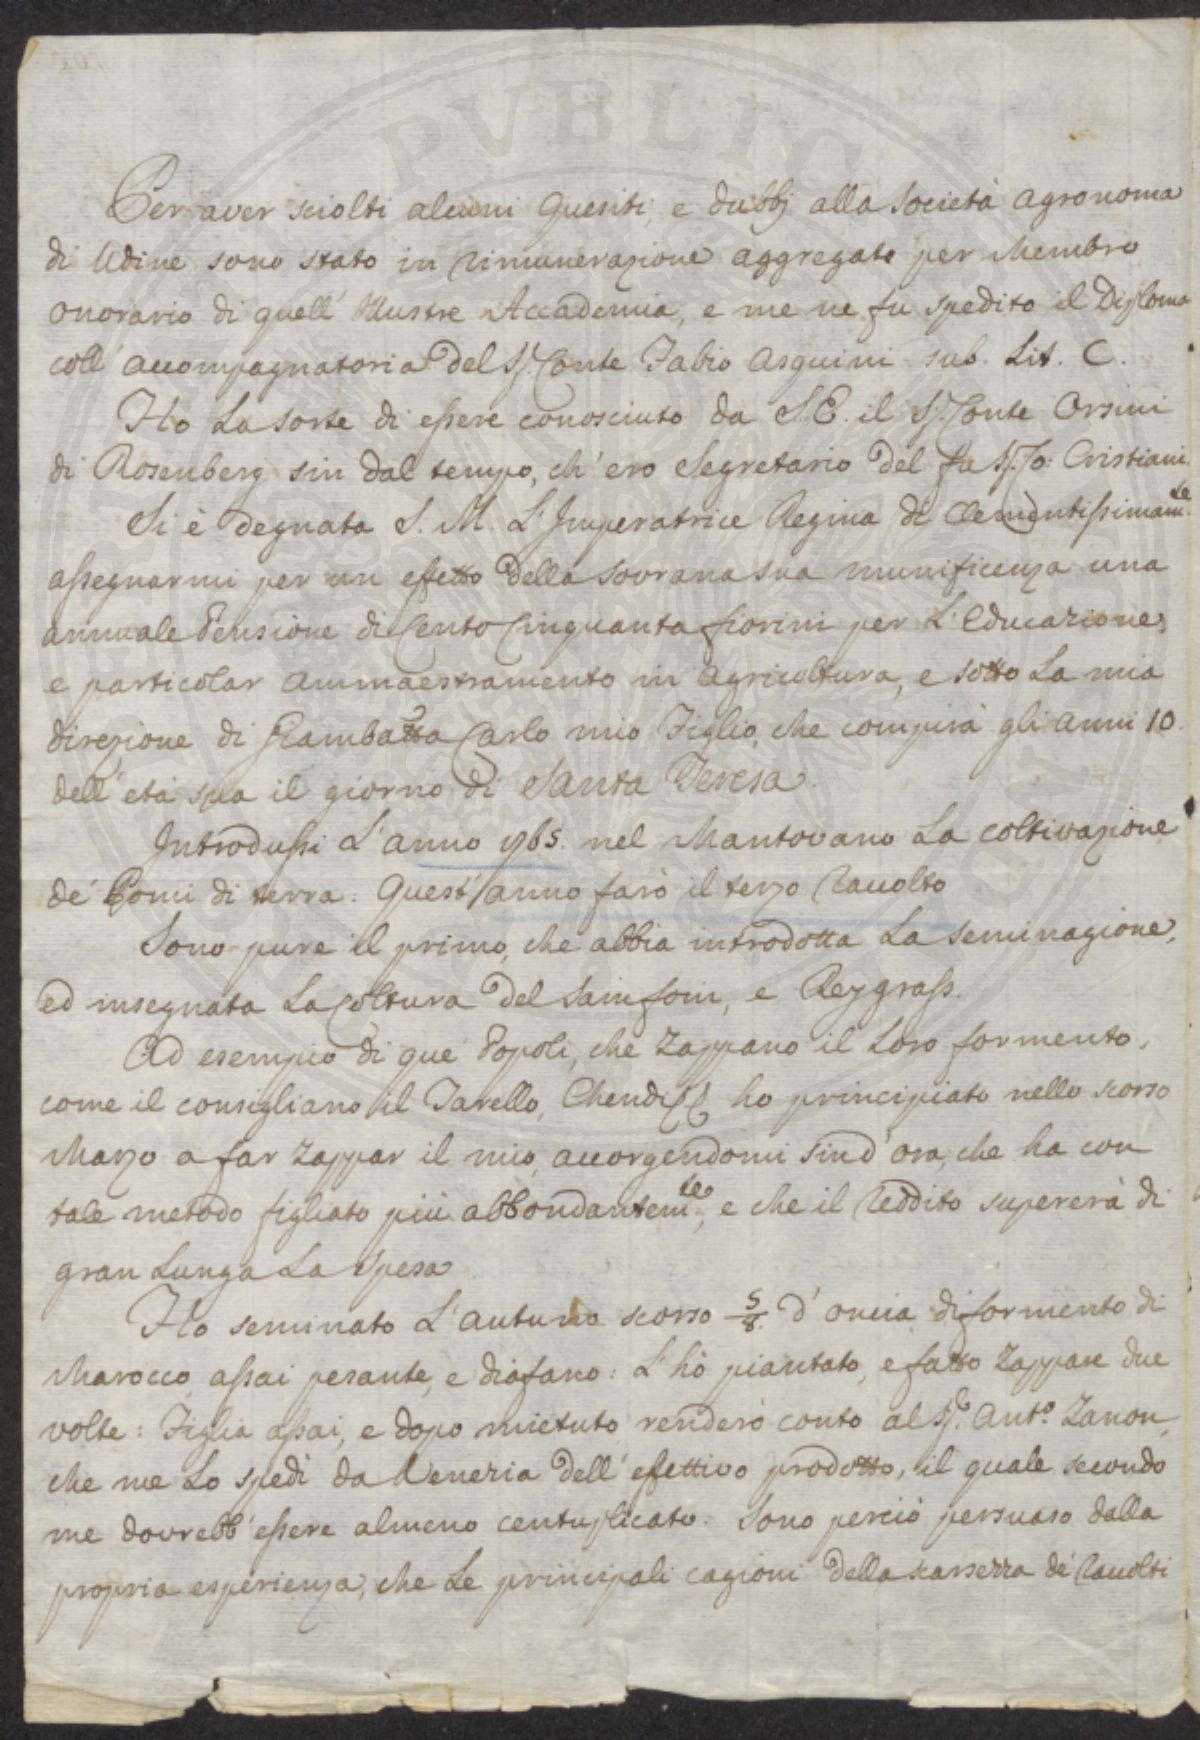 Per aver sciolti alcuni Quesiti, e dubbj alla Società Agronoma
di Udine sono stato in rimunerazione aggregato per Membro
onorario di quell' Illustre Accademia, e me ne fu spedito il Diploma
coll' accompagnatoria del Sr. Conte Fabio Asquini sub. Lit. C.
Ho La sorte di essere conosciuto da S. E. il Sr. Conte Orsini
di Rosenberg sin dal tempo, ch' ero Segretario del fu Cristiani.
Si è degnata S. M. L'Imperatrice Regina di Clementissimamte.
assegnarmi per un effetto della sovrana sua munificenza una
annuale Pensione di Cento Cinquanta fiorini per L'Educazione,
e particolar ammaestramento in Agricoltura, e sotto La mia
direzione di Giambatta Carlo mio Figlio, che compirà gli anni 10.
dell' età sua il giorno di Santa Teresa.
Introdussi L'anno 1765. nel Mantovano La coltivazione
de' Pomi di terra: Quest' anno farò il terzo raccolto
Sono pure il primo, che abbia introdotta La seminagione,
ed insegnata La Coltura del Sainfoin, e Reygrass.
Ad esempio di que' Popoli, che Zappano il Loro formento,
come il consigliano il Tarello, ho principiato nello scorso
Marzo a far Zappar il mio, accorgendomi sin d'ora, che ha con
tale metodo figliato più abbondantemte., e che il reddito supererà di
gran Lunga La spesa
Ho seminato L'autuno scorso 5/8. d'oncia di formento di
Marocco, assai pesante, e diafano: L'hò piantato, e fatto Zappare due
volte: Figlia assai, e dopo mietuto renderò conto al Sr. Anto. Zanon,
che me Lo spedì da Venezia dell' effettivo prodotto, il quale secondo
me dovrebb' essere almeno centuplicato. Sono perciò persuaso dalla
propria esperienza, che Le principali cagioni della scarsezza de' raccolti
PVBLIC